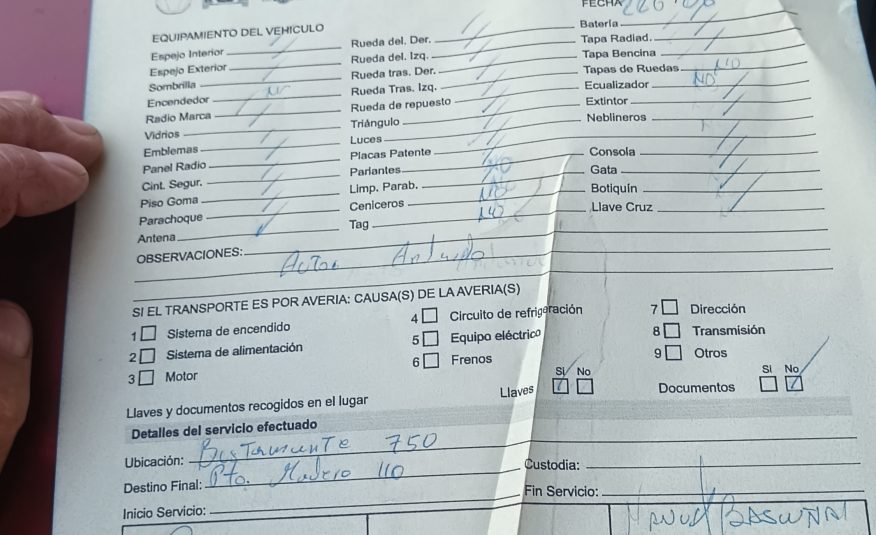 FECHA 226
EQUIPAMIENTO DEL VEHICULO
Espejo Interior
Espejo Exterior
Sombrilla
Encendedor
Radio Marca
Vidrios
Emblemas
Panel Radio
Cint. Segur.
Piso Goma
Parachoque
Antena
Rueda del. Der.
Rueda del. Izq.
Rueda tras. Der.
Rueda Tras. Izq.
Rueda de repuesto
Triángulo
Luces
Placas Patente
Parlantes NO
Limp. Parab.
Ceniceros NO
Tag NO
Batería
Tapa Radiad.
Tapa Bencina
Tapas de Ruedas NO
Ecualizador NO
Extintor
Neblineros
Consola
Gata
Botiquín
Llave Cruz
OBSERVACIONES:
SI EL TRANSPORTE ES POR AVERIA: CAUSA(S) DE LA AVERIA(S)
1 Sistema de encendido
2 Sistema de alimentación
3 Motor
4 Circuito de refrigeración
5 Equipo eléctrico
6 Frenos
7 Dirección
8 Transmisión
9 Otros
Llaves y documentos recogidos en el lugar
Llaves Si No
Documentos Si No
Detalles del servicio efectuado
Ubicación: Bustamante 750
Destino Final: Pto. Madero 110
Custodia:
Inicio Servicio:
Fin Servicio: